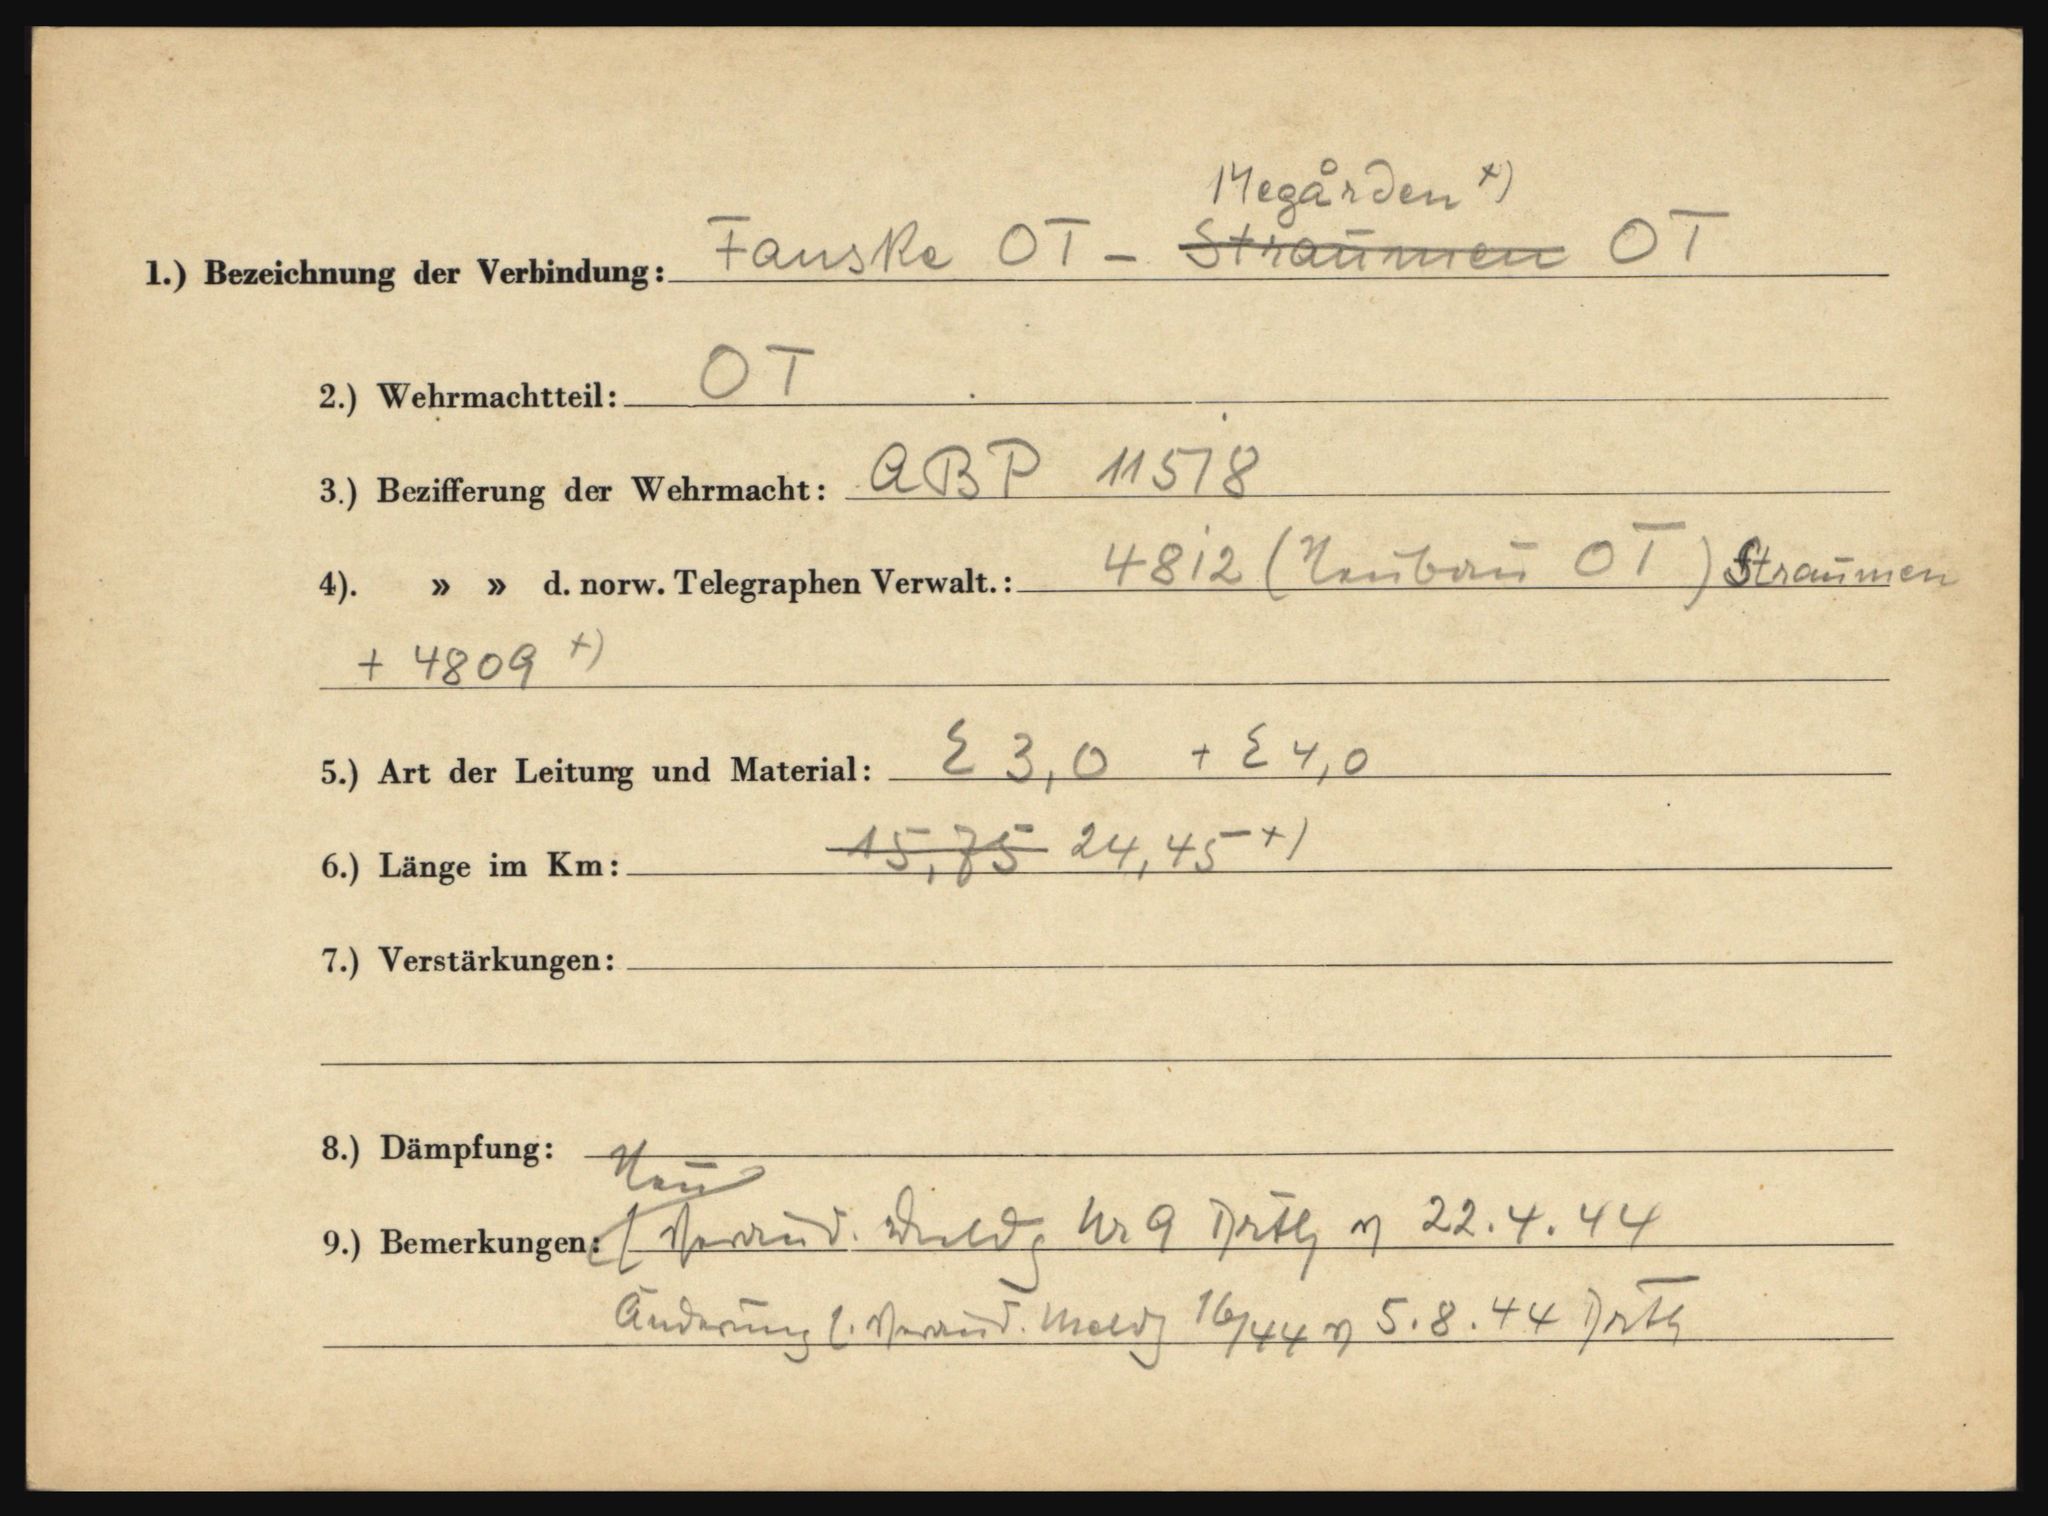 Megården +)
1.) Bezeichnung der Verbindung: Fauske OT - Straumen OT
2.) Wehrmachtteil: OT
3.) Bezifferung der Wehrmacht: ABP 11518
4). » » d. norw. Telegraphen Verwalt.: 4812 (Neubau OT) Straumen
+ 4809 +)
5.) Art der Leitung und Material: E 3,0 + E 4,0
6.) Länge im Km: 15,75 24,45 +)
7.) Verstärkungen:
8.) Dämpfung:
Neu
9.) Bemerkungen: Veränd. Meldg Nr 9 v 22.4.44
Änderung l. Veränd. Meldg 16/44 v 5.8.44